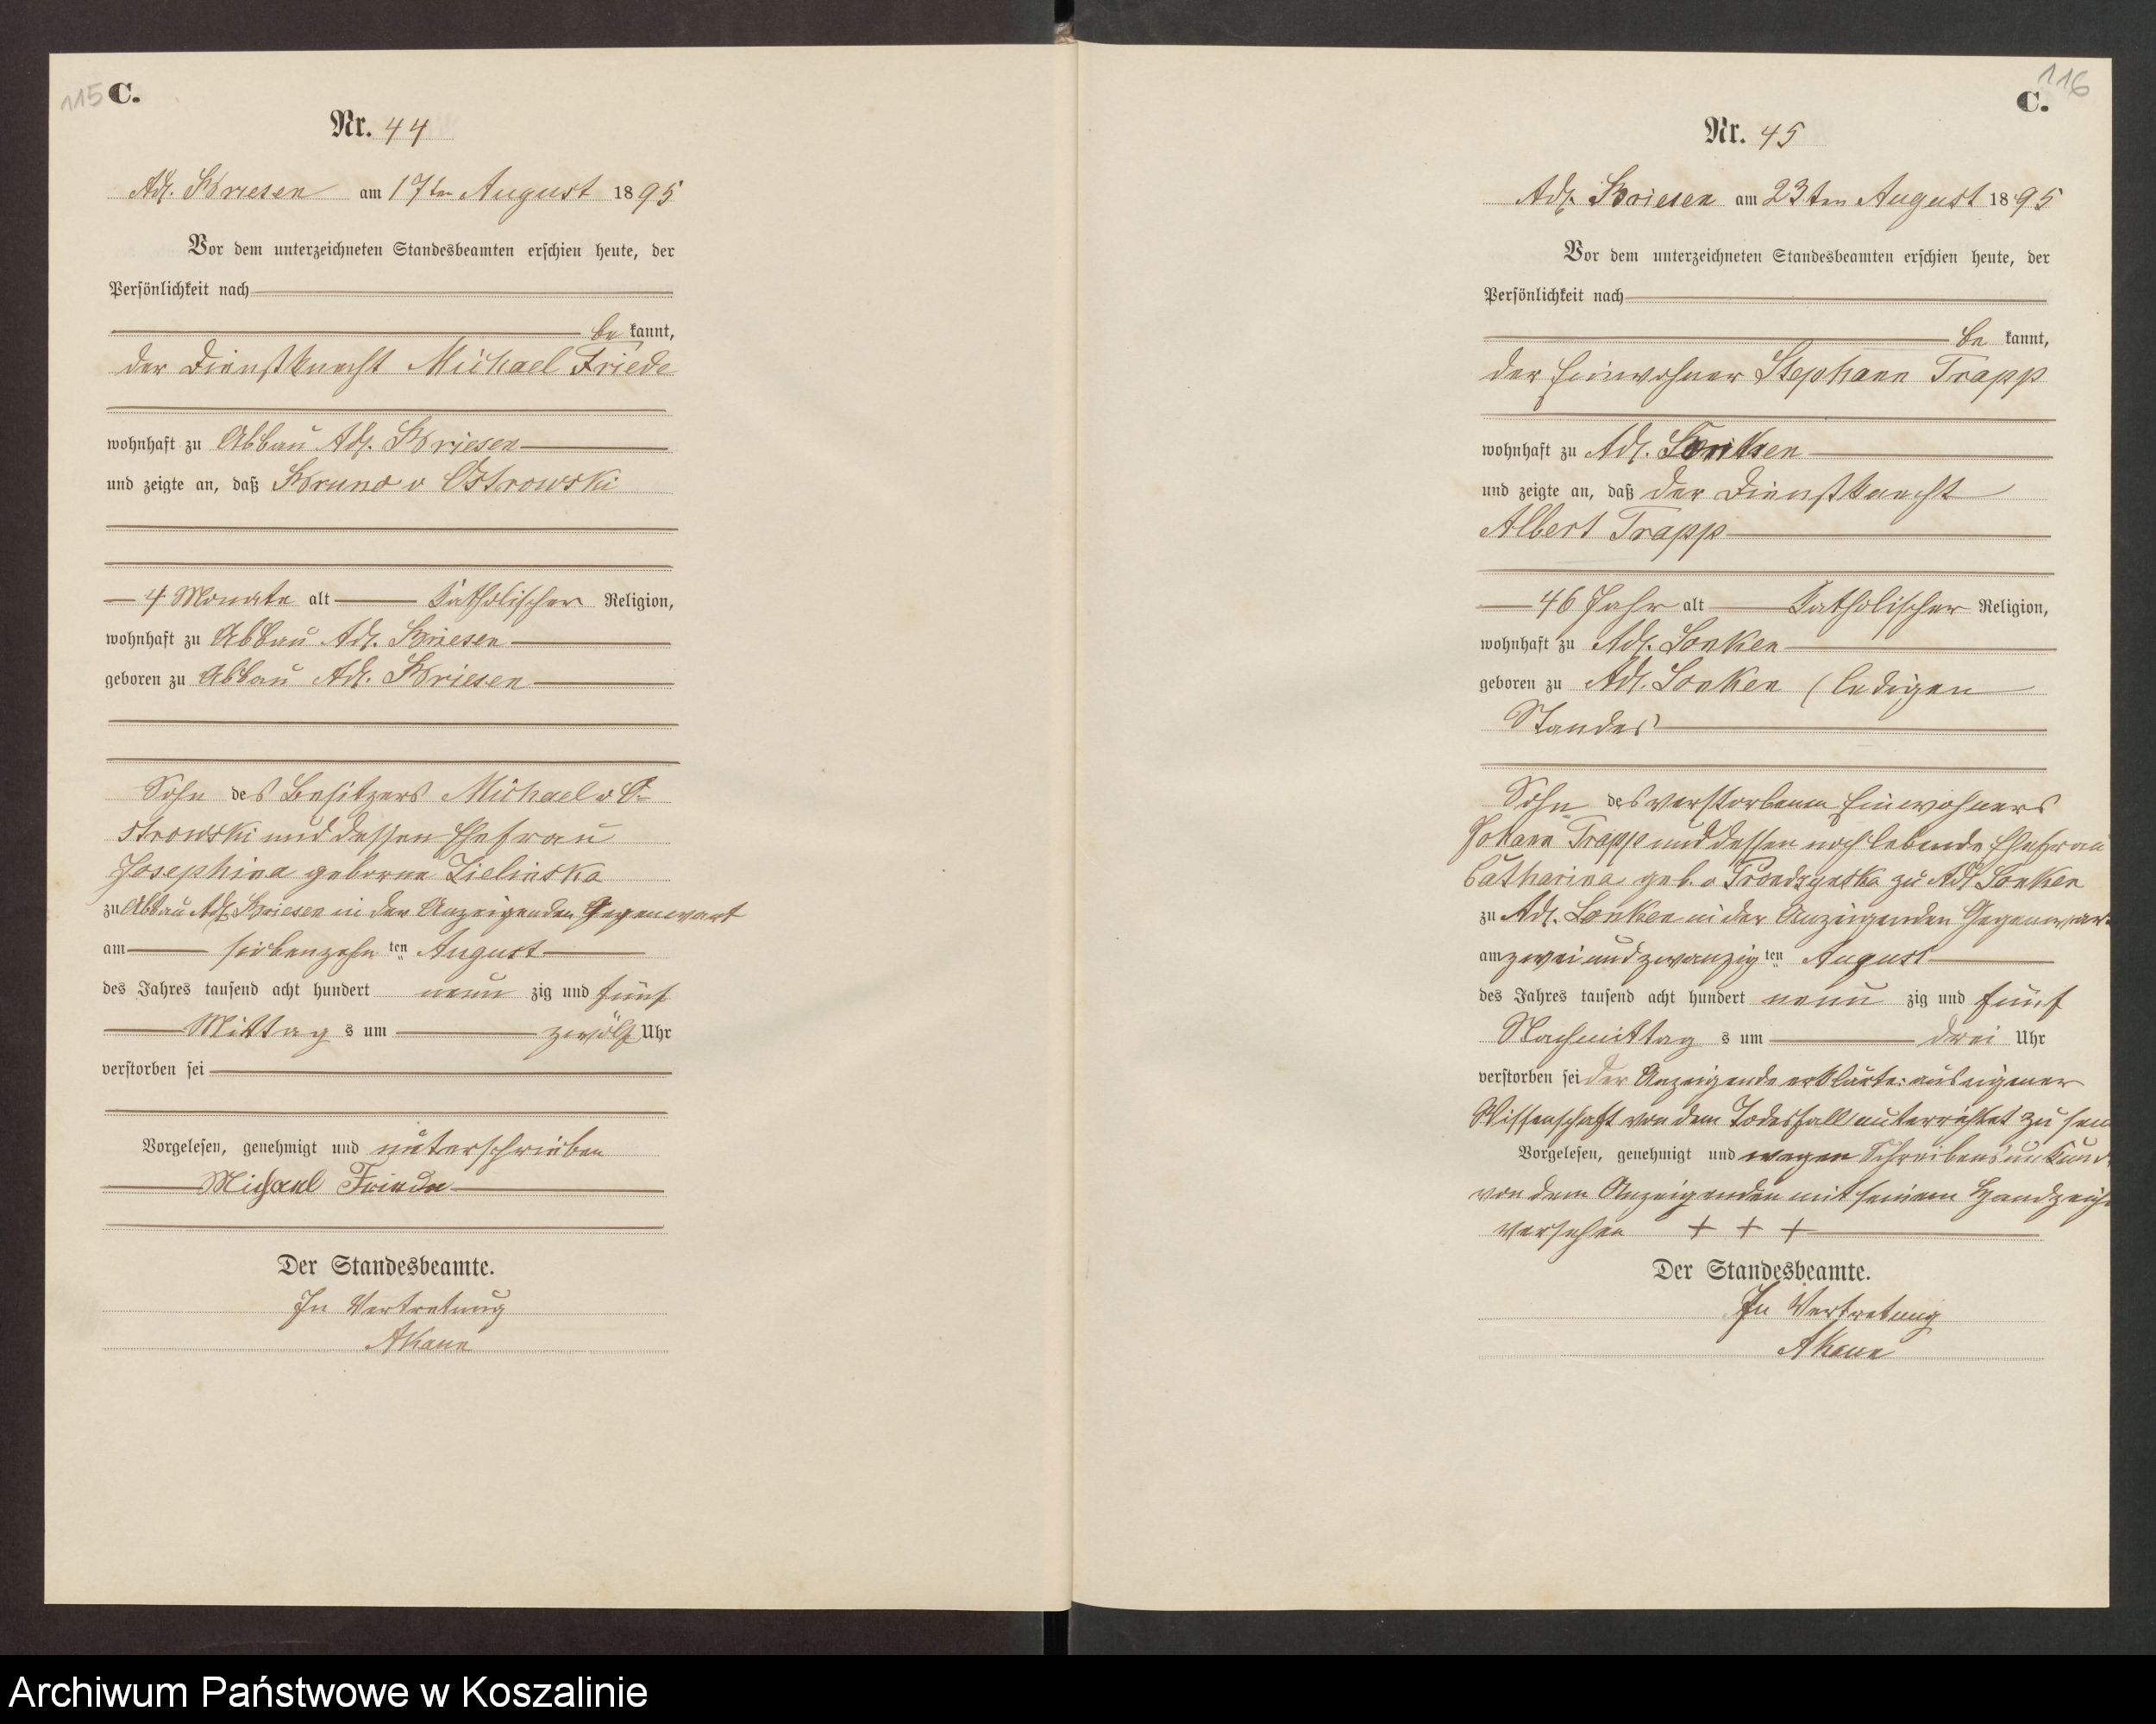 115 C.
Nr. 44
Adl. Briesen am 17ten August 1895
Vor dem unterzeichneten Standesbeamten erschien heute, der
Persönlichkeit nach
be kannt,
der Dienstknecht Michael Friede
wohnhaft zu Abbau Adl. Briesen
und zeigte an, daß Bruno v Ostrowski
4 Monate alt katholischer Religion,
wohnhaft zu Abbau Adl. Briesen
geboren zu Abbau Adl. Briesen
Sohn des Besitzers Michael v O-
strowski und dessen Ehefrau
Josephina geborne Zielinska
zu Abbau Adl. Briesen in der Anzeigenden Gegenwart
am siebenzehn ten August
des Jahres tausend acht hundert neun zig und fünf
Mittag s um zwölf Uhr
verstorben sei
Vorgelesen, genehmigt und unterschrieben
Michael Friede
Der Standesbeamte.
In Vertretung
AKaun
116
C.
Nr. 45
Adl. Briesen am 23ten August 1895
Vor dem unterzeichneten Standesbeamten erschien heute, der
Persönlichkeit nach
be kannt,
der Einwohner Stephann Trapp
wohnhaft zu Adl.
und zeigte an, daß der Dienstknecht
Albert Trapp
46 Jahr alt katholischer Religion,
wohnhaft zu Adl. Lonken
geboren zu Adl. Lonken (ledigen
Standes
Sohn des verstorbenen Einwohners
Johann Trapp und dessen noch lebende Ehefrau
Catharina geb. v zu Adl Lonken
zu Adl. Lonken in der Anzeigenden Gegenwar
am zwei und zwanzig ten August
des Jahres tausend acht hundert neun zig und fünf
Nachmittag s um drei Uhr
verstorben sei der Anzeigende erklärte: aus eigener
Wissenschaft von dem Todesfall unterrichtet zu sein
Vorgelesen, genehmigt und wegen Schreibensunkund
von dem Anzeigenden mit seinem Handzeich
versehen + + +
Der Standesbeamte.
In Vertretung
AKaun
Archiwum Państwowe w Koszalinie